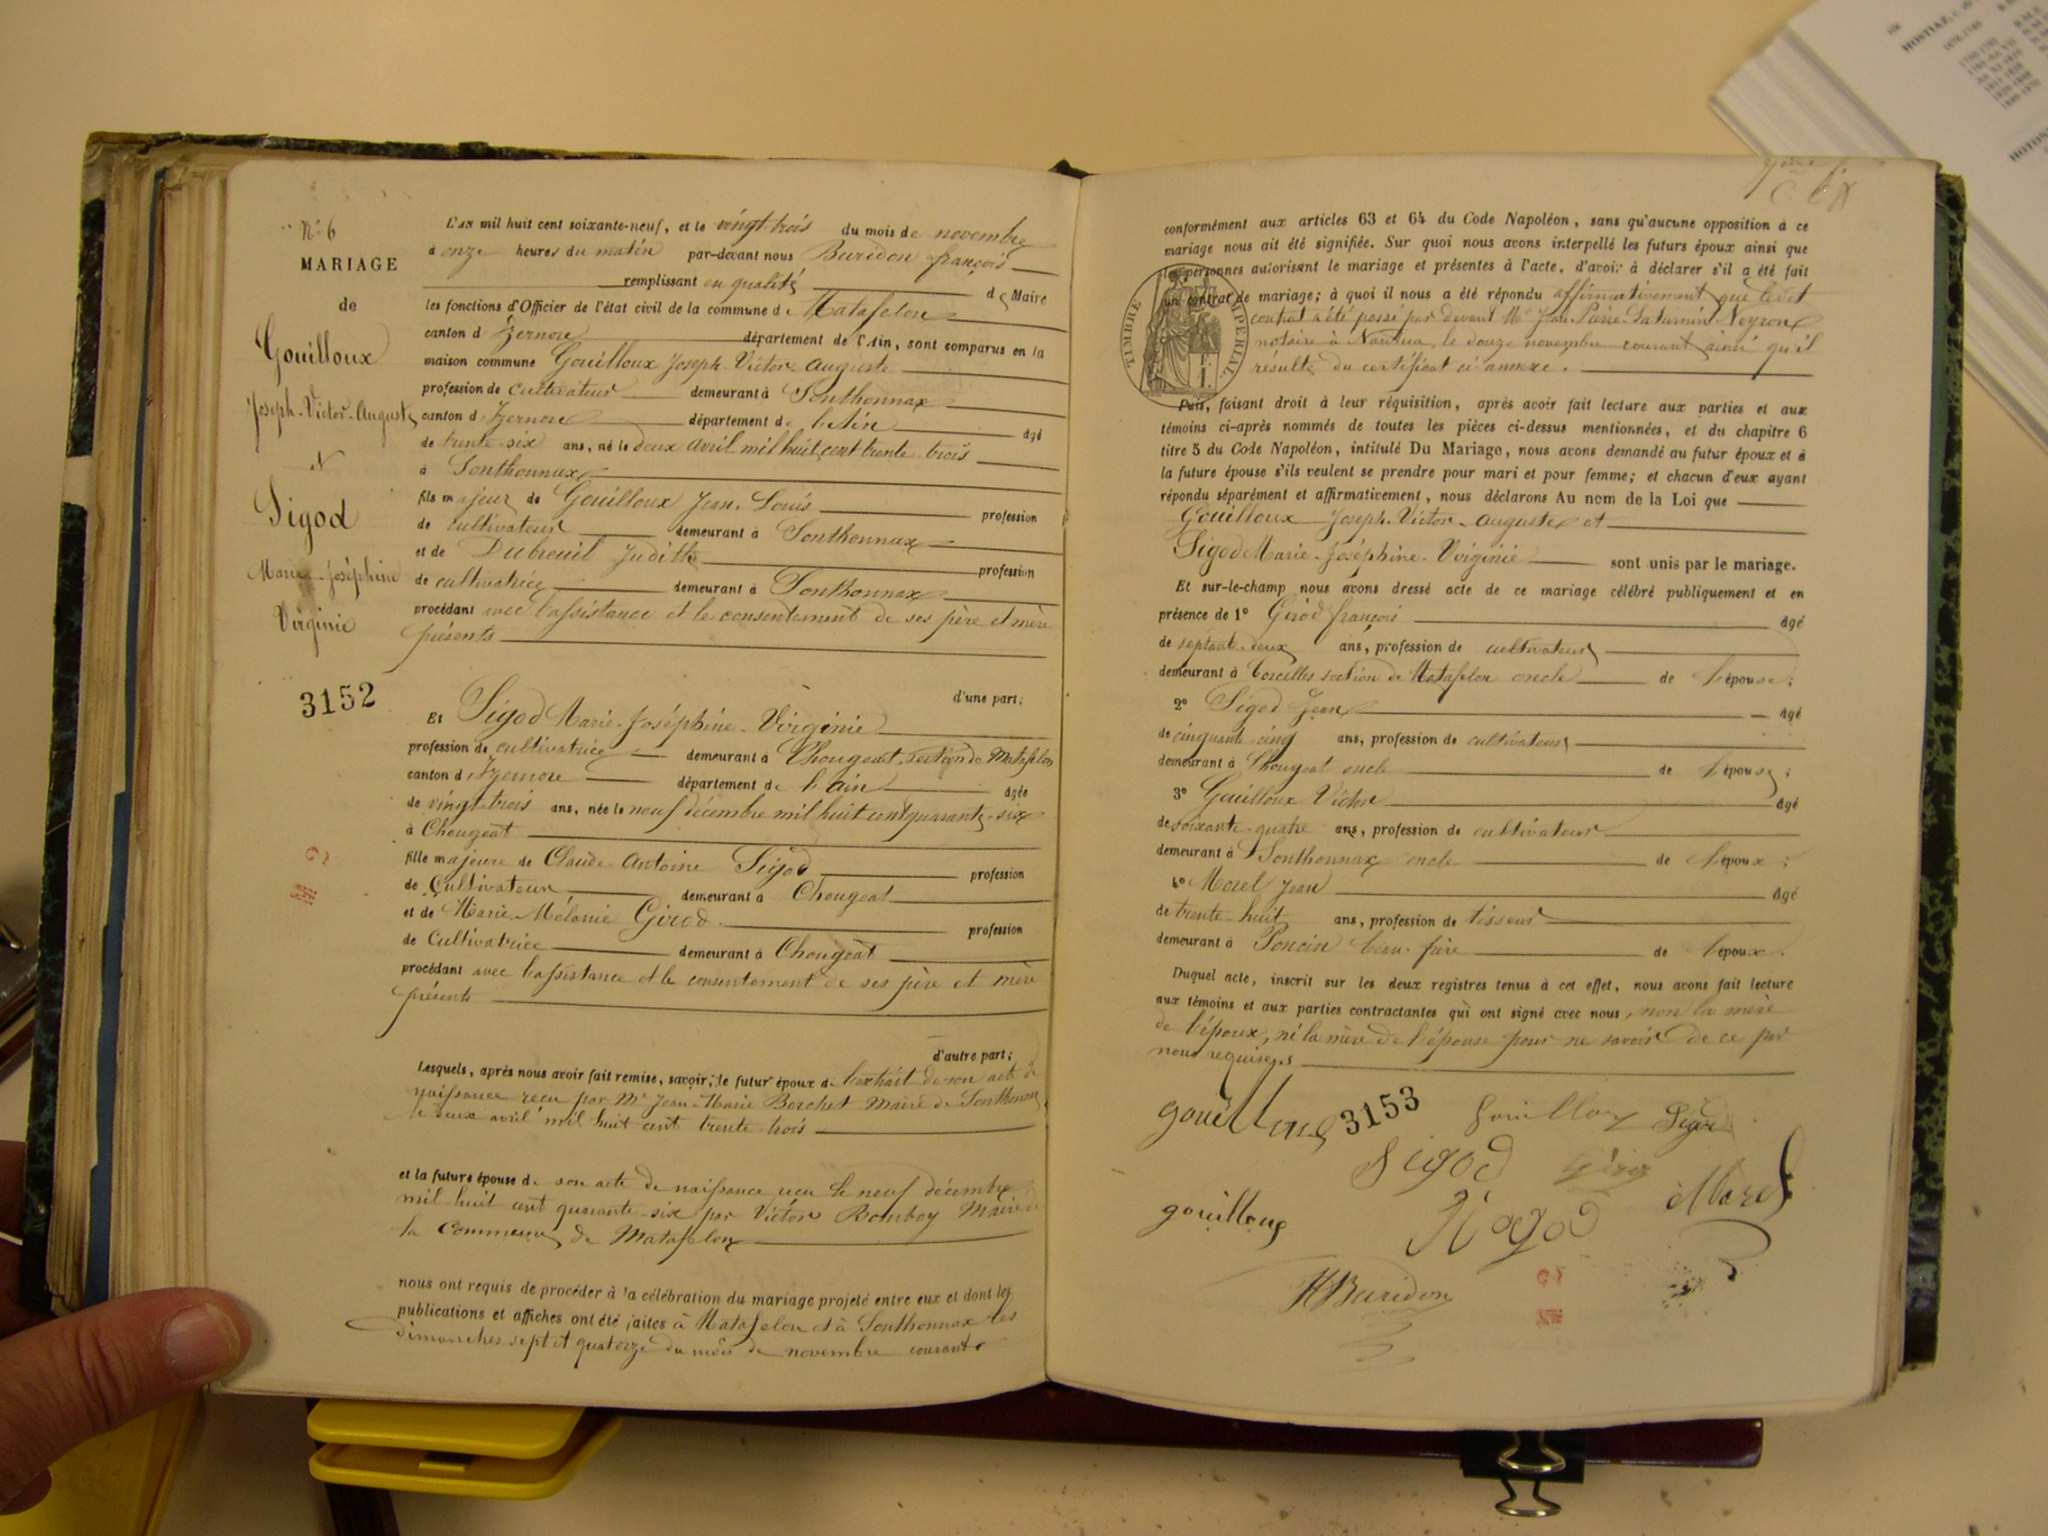 N° 6
MARIAGE
de
Gouilloux
Joseph-Victor-Auguste
&
Sigod
Marie-Joséphine
Virginie
3152
L'AN mil huit cent soixante-neuf, et le vingt trois du mois de novembre
à onze heures du matin par-devant nous Buridon françois
remplissant en qualité de Maire
les fonctions d'Officier de l'état civil de la commune de Matafelon
canton d'Izernore département de l'Ain, sont comparus en la
maison commune Gouilloux Joseph-Victor-Auguste
profession de cultivateur demeurant à Sonthonnax
canton d'Izernore département de l'Ain âgé
de trente-six ans, né le deux avril mil huit cent trente trois
à Sonthonnax
fils majeur de Gouilloux Jean-Louis profession
de cultivateur demeurant à Sonthonnax
et de Dubreuil Judith profession
de cultivatrice demeurant à Sonthonnax
procédant avec l'assistance et le consentement de ses père et mère
présents
d'une part;
Et Sigod Marie-Joséphine-Virginie
profession de cultivatrice demeurant à Chougeat section de Matafelon
canton d'Izernore département de l'ain âgée
de vingt-trois ans, née le neuf décembre mil huit cent quarante-six
à Chougeat
fille majeure de Claude-Antoine Sigod profession
de Cultivateur demeurant à Chougeat
et de Marie-Mélanie Girod profession
de Cultivatrice demeurant à Chougeat
procédant avec l'assistance et le consentement de ses père et mère
présents
d'autre part;
Lesquels, après nous avoir fait remise, savoir; le futur époux de l'extrait de son acte de
naissance reçu par Mr Jean-Marie Berchet Maire de Sonthonnax
le deux avril mil huit cent trente trois
et la future épouse de son acte de naissance reçu le neuf décembre
mil huit cent quarante-six par Victor Bomboy Maire de
la Commune de Matafelon
nous ont requis de procéder à la célébration du mariage projeté entre eux et dont les
publications et affiches ont été faites à Matafelon et à Sonthonnax les
dimanches sept et quatorze du mois de novembre courant
conformément aux articles 63 et 64 du Code Napoléon, sans qu'aucune opposition à ce
mariage nous ait été signifiée. Sur quoi nous avons interpellé les futurs époux ainsi que
les personnes autorisant le mariage et présentes à l'acte, d'avoir à déclarer s'il a été fait
un contrat de mariage; à quoi il nous a été répondu affirmativement que ledit
contrat a été passé par devant Me Jean-Pierre-Saturnin Neyron
notaire à Nantua, le douze novembre courant ainsi qu'il
résulte du certificat ci-annexé.
TIMBRE IMPERIAL
1 F.
Puis, faisant droit à leur réquisition, après avoir fait lecture aux parties et aux
témoins ci-après nommés de toutes les pièces ci-dessus mentionnées, et du chapitre 6
titre 5 du Code Napoléon, intitulé Du Mariage, nous avons demandé au futur époux et à
la future épouse s'ils veulent se prendre pour mari et pour femme; et chacun d'eux ayant
répondu séparément et affirmativement, nous déclarons Au nom de la Loi que
Gouilloux Joseph-Victor-Auguste et
Sigod Marie-Joséphine-Virginie sont unis par le mariage.
Et sur-le-champ nous avons dressé acte de ce mariage célébré publiquement et en
présence de 1° Girod françois âgé
de septante-deux ans, profession de cultivateur
demeurant à Corcelles section de Matafelon oncle de l'épouse;
2° Sigod Jean âgé
de cinquante cinq ans, profession de cultivateur
demeurant à Chougeat oncle de l'épouse;
3° Gouilloux Victor âgé
de soixante-quatre ans, profession de cultivateur
demeurant à Sonthonnax oncle de l'époux;
4° Morel Jean âgé
de trente-huit ans, profession de tisseur
demeurant à Poncin beau-frère de l'époux.
Duquel acte, inscrit sur les deux registres tenus à cet effet, nous avons fait lecture
aux témoins et aux parties contractantes qui ont signé avec nous, non la mère
de l'époux, ni la mère de l'épouse pour ne savoir de ce par
nous requises
gouilloux 3153 Gouilloux Sigod
Sigod Girod Morel
gouilloux Sigod
F Buridon